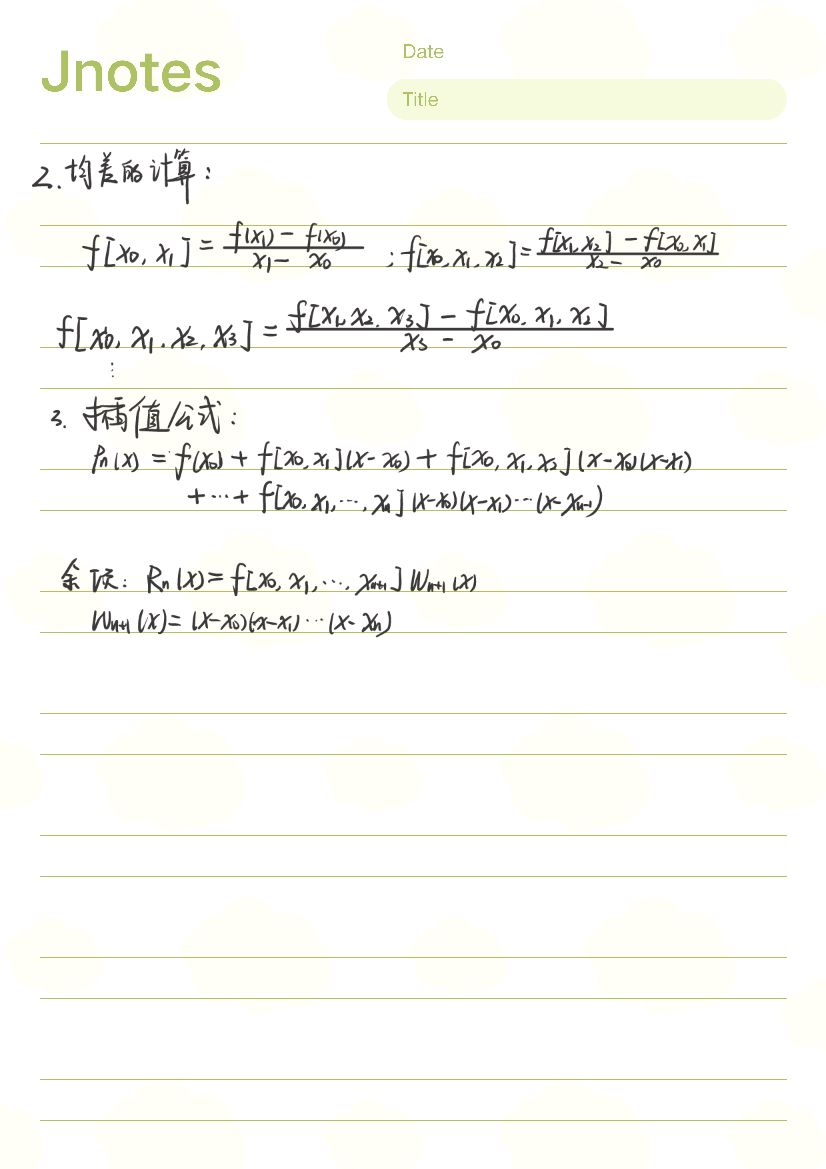 Jnotes
Date
Title
2. 均差的计算：
f[x₀, x₁] = (f(x₁) − f(x₀))/(x₁ − x₀) ; f[x₀, x₁, x₂] = (f[x₁, x₂] − f[x₀, x₁])/(x₂ − x₀)
f[x₀, x₁, x₂, x₃] = (f[x₁, x₂, x₃] − f[x₀, x₁, x₂])/(x₃ − x₀)
⋮
3. 插值公式：
Pₙ(x) = f(x₀) + f[x₀, x₁](x − x₀) + f[x₀, x₁, x₂](x − x₀)(x − x₁)
+ ⋯ + f[x₀, x₁, ⋯, xₙ](x − x₀)(x − x₁) ⋯ (x − xₙ₋₁)
余项：Rₙ(x) = f[x₀, x₁, ⋯, xₙ₊₁] Wₙ₊₁(x)
Wₙ₊₁(x) = (x − x₀)(x − x₁) ⋯ (x − xₙ)